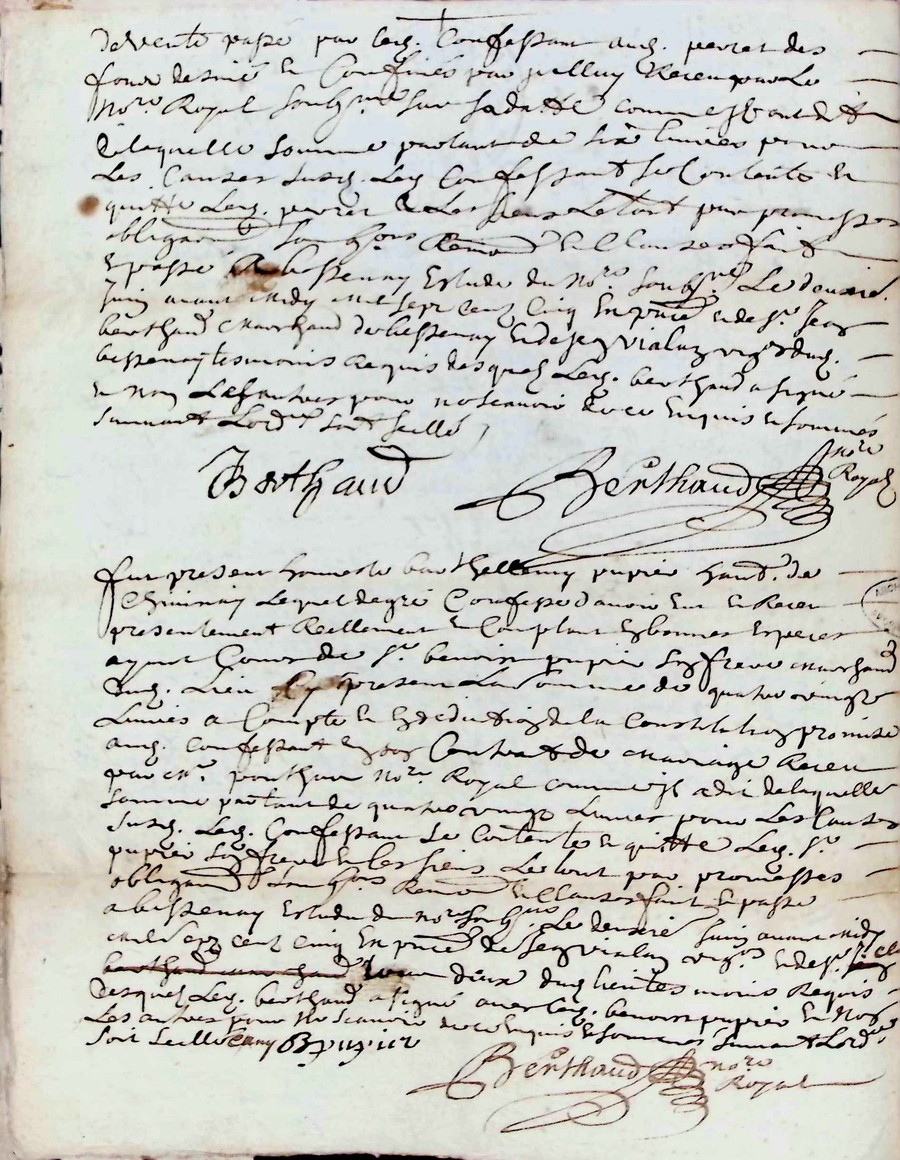 de vente passé par led. Confessant aud. perret des
fond designé & Confinés par jcelluy Receu par Le
No.re Royal soubs.né sur sa datte comme jls ont dit
de laquelle somme partant de six livres pour
Les Causes susd. Led. Confessant se Contente en
quitte Led. perret & Les siens Le tout par promesses
obliga.on soubm.ons Renon.on & Clauses fait
& passé A bessenay Estude du No.re soubs.né Le deuxie.
juin avant midy mil sept cent Cinq En p.nce de s.r Jean
berthaud marchand de bessenay & de Jean vialuy vig.on dud.
bessenay tesmoins requis desquels Led. berthaud a signé
& non Les autres pour ne scavoir de ce Enquis & sommés
suivant L'ord.ce soit scellé
Berthaud
Berthaud no.re
Royal
fut present honneste barthellemy pupier hand. de
Chivinay Lequel de gré Confesse d'avoir Eut & Receu
presentement Reellement & Comptant En bonnes Especes
ayant Cours de s.r benoist pupier son frere marchand
dud. Lieu Cy present La somme de quatre vingt
Livres a Compte & En deduction de la Constitution promise
aud. Confessant En son Contrat de mariage Receu
par m.e ponthus no.re Royal comme jl a dit de laquelle
somme partant de quatre vingt Livres pour Les Causes
susd. Led. Confessant se Contente & quitte Led. s.r
pupier son frere & les siens Le tout par promesses
obliga.on soubm.ons Renon.on & Clauses fait & passé
a bessenay Estude du no.re soubs.né Le deuxie juin avant midy
mil sept cent Cinq En p.nce de Jean vialuy vig.on & de s.r
berthaud marchand tous deux dud. lieu tesmoins Requis
desquels Led. berthaud a signé avec led. benoist pupier & Non
Les autres pour Ne scavoir de ce Enquis & sommés suivant L'ord.ce
soit scellé B pupier
Berthaud no.re
Royal